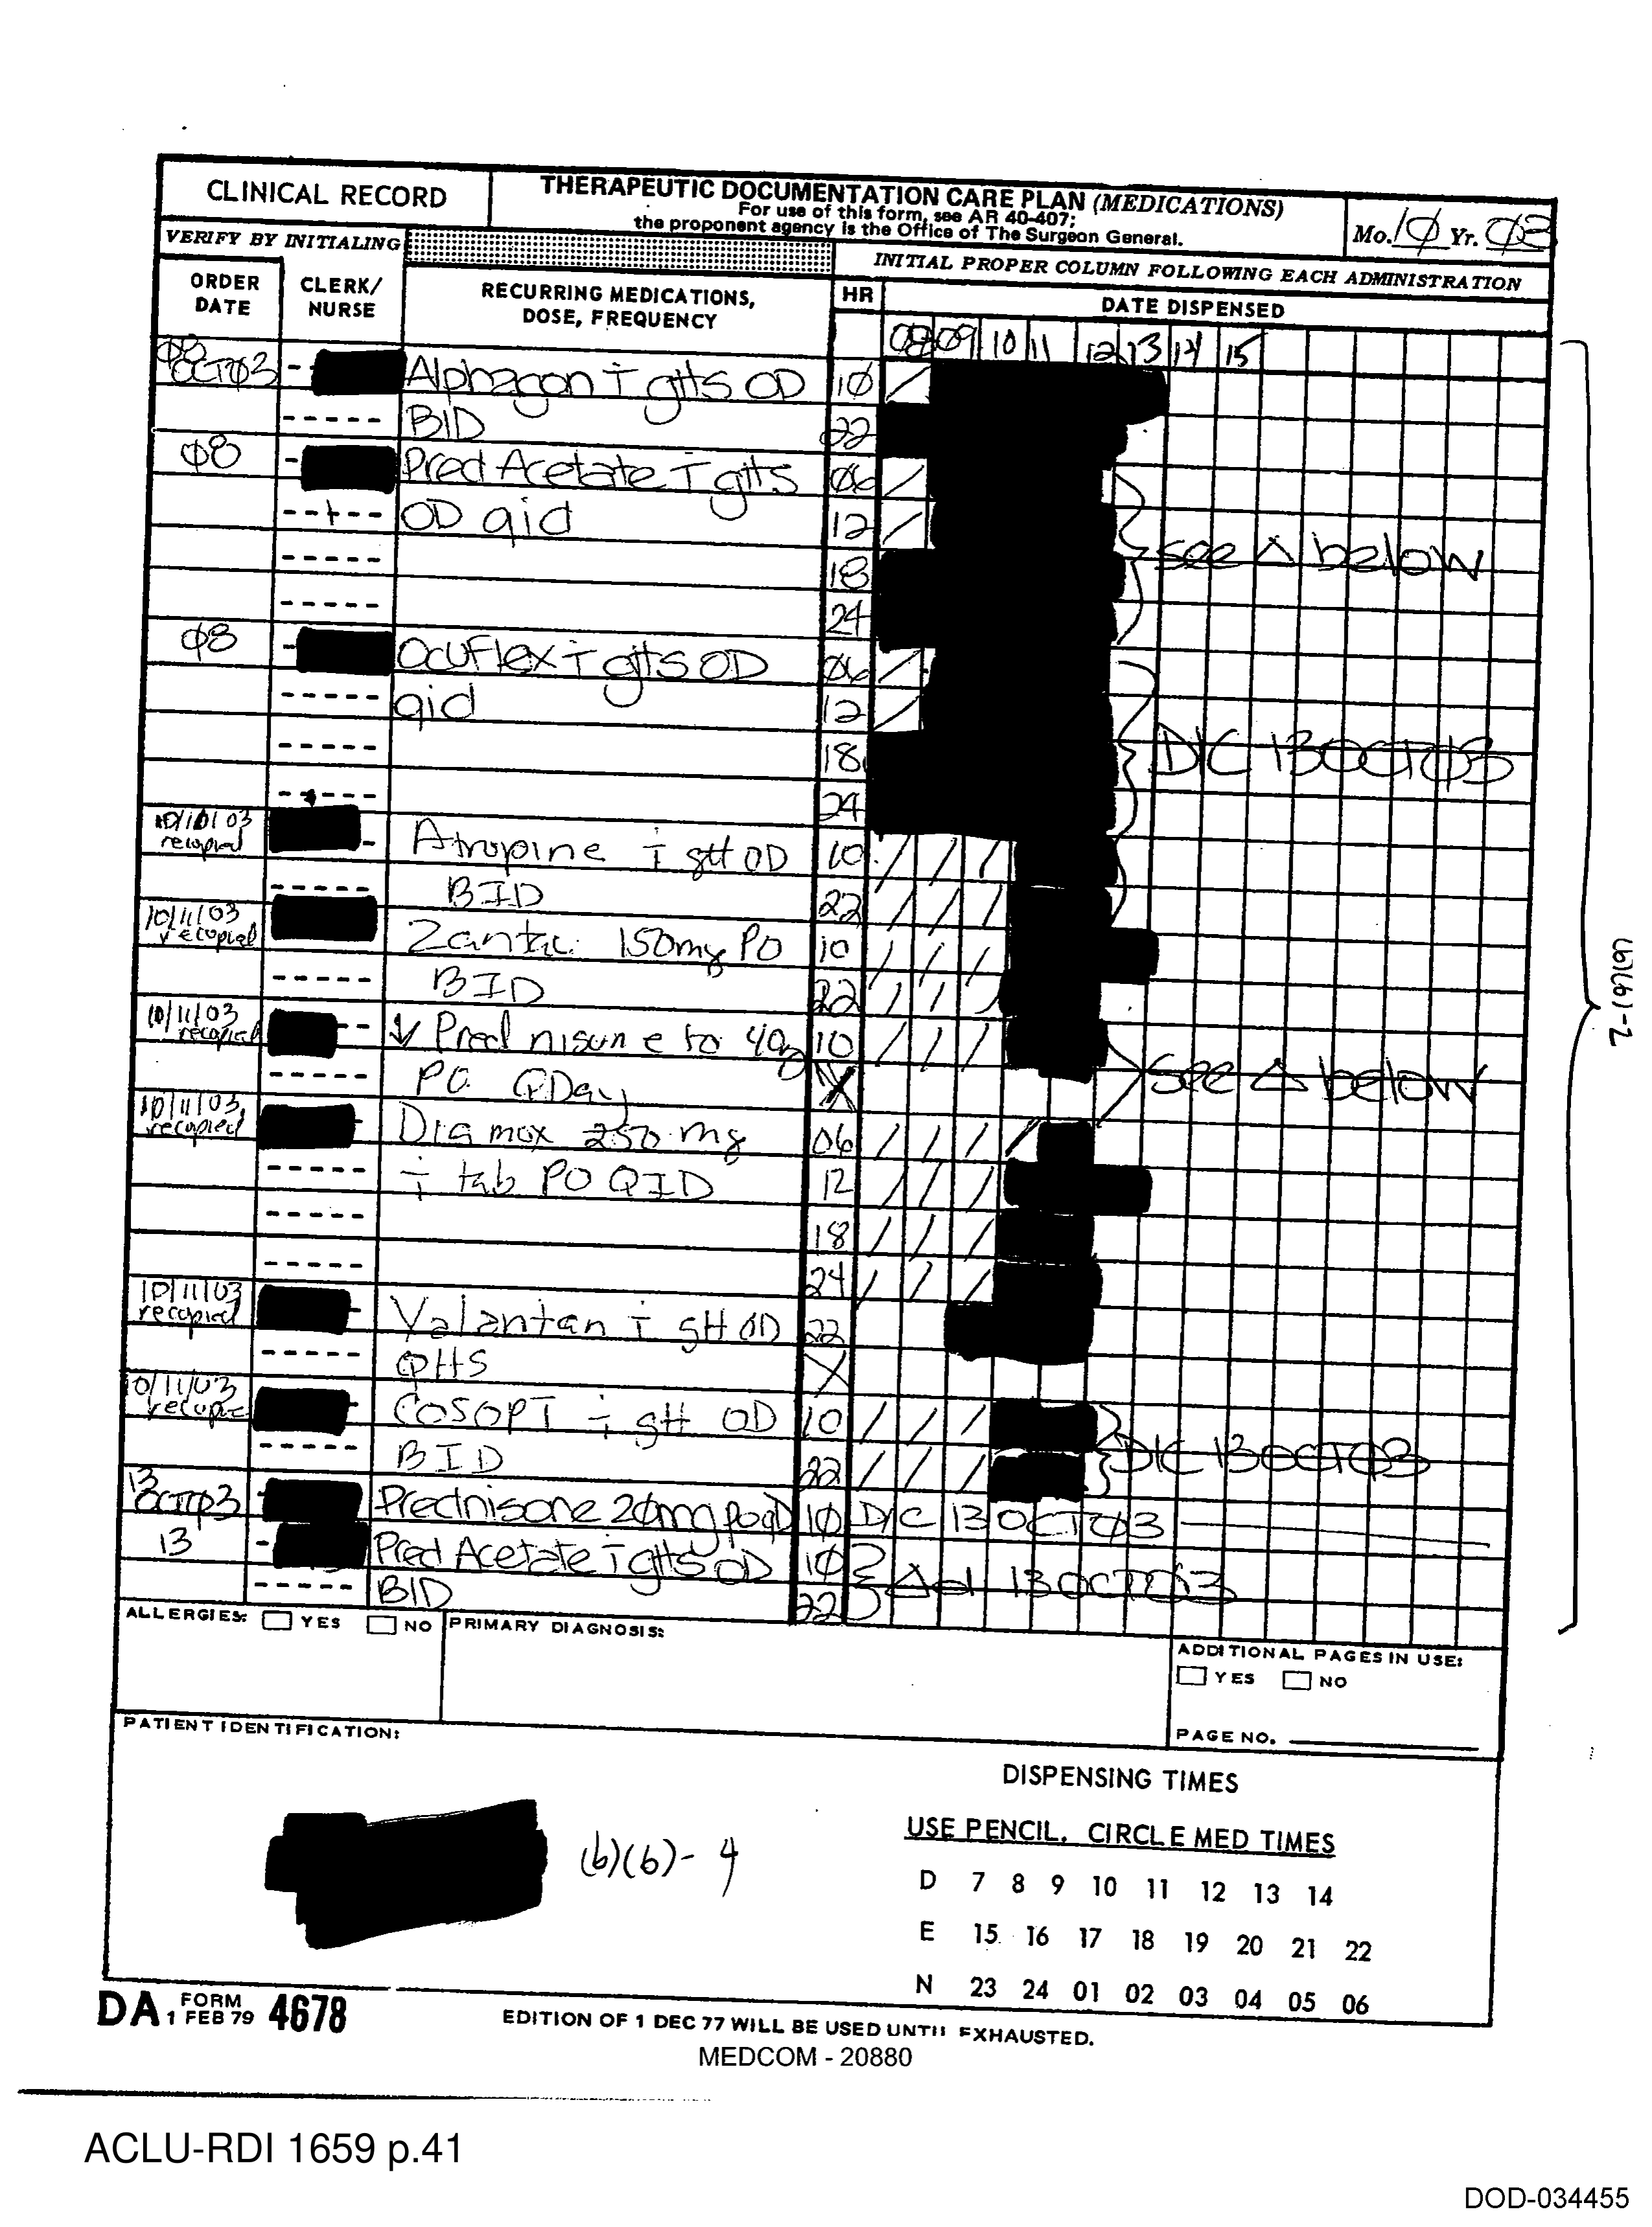 CLINICAL RECORD
THERAPEUTIC DOCUMENTATION CARE PLAN (MEDICATIONS)
For use of this form, see AR 40-407;
the proponent agency is the Office of The Surgeon General.
Mo. 1Ø Yr. Ø3
VERIFY BY INITIALING
INITIAL PROPER COLUMN FOLLOWING EACH ADMINISTRATION
ORDER DATE
CLERK/ NURSE
RECURRING MEDICATIONS, DOSE, FREQUENCY
HR
DATE DISPENSED
08 09 10 11 12 13 14 15
Ø8 OCTØ3 Alphagon T gtts OD 1Ø
BID 22
Ø8 Pred Acetate T gtts 06
OD qid 12 see Δ below
18
24
Ø8 Ocuflex T gtts OD 06
qid 12
18 D/C 13OCTØ3
24
10/11/03 recopied Atropine T gtt OD 10
BID 22
10/11/03 recopied Zantac 150mg PO 10
BID 22
10/11/03 recopied ↓ Prednisone to 40 10
PO QDay X see Δ below
10/11/03 recopied Diamox 250 mg 06
T tab PO QID 12
18
24
10/11/03 recopied Valantan T gtt OD 22
QHS X
10/11/03 recopie COSOPT T gtt OD 10
BID 22 D/C 13OCTØ3
13 OCTØ3 Prednisone 2Ømg po qD 1Ø D/C 13OCTØ3
13 Pred Acetate T gtts OD 1Ø
BID 22 13OCTØ3
ALLERGIES: YES NO
PRIMARY DIAGNOSIS:
ADDITIONAL PAGES IN USE:
YES NO
PAGE NO.
PATIENT IDENTIFICATION:
(b)(6)-4
(b)(6)-2
DISPENSING TIMES
USE PENCIL. CIRCLE MED TIMES
D 7 8 9 10 11 12 13 14
E 15 16 17 18 19 20 21 22
N 23 24 01 02 03 04 05 06
DA FORM 1 FEB 79 4678
EDITION OF 1 DEC 77 WILL BE USED UNTIL EXHAUSTED.
MEDCOM - 20880
ACLU-RDI 1659 p.41
DOD-034455